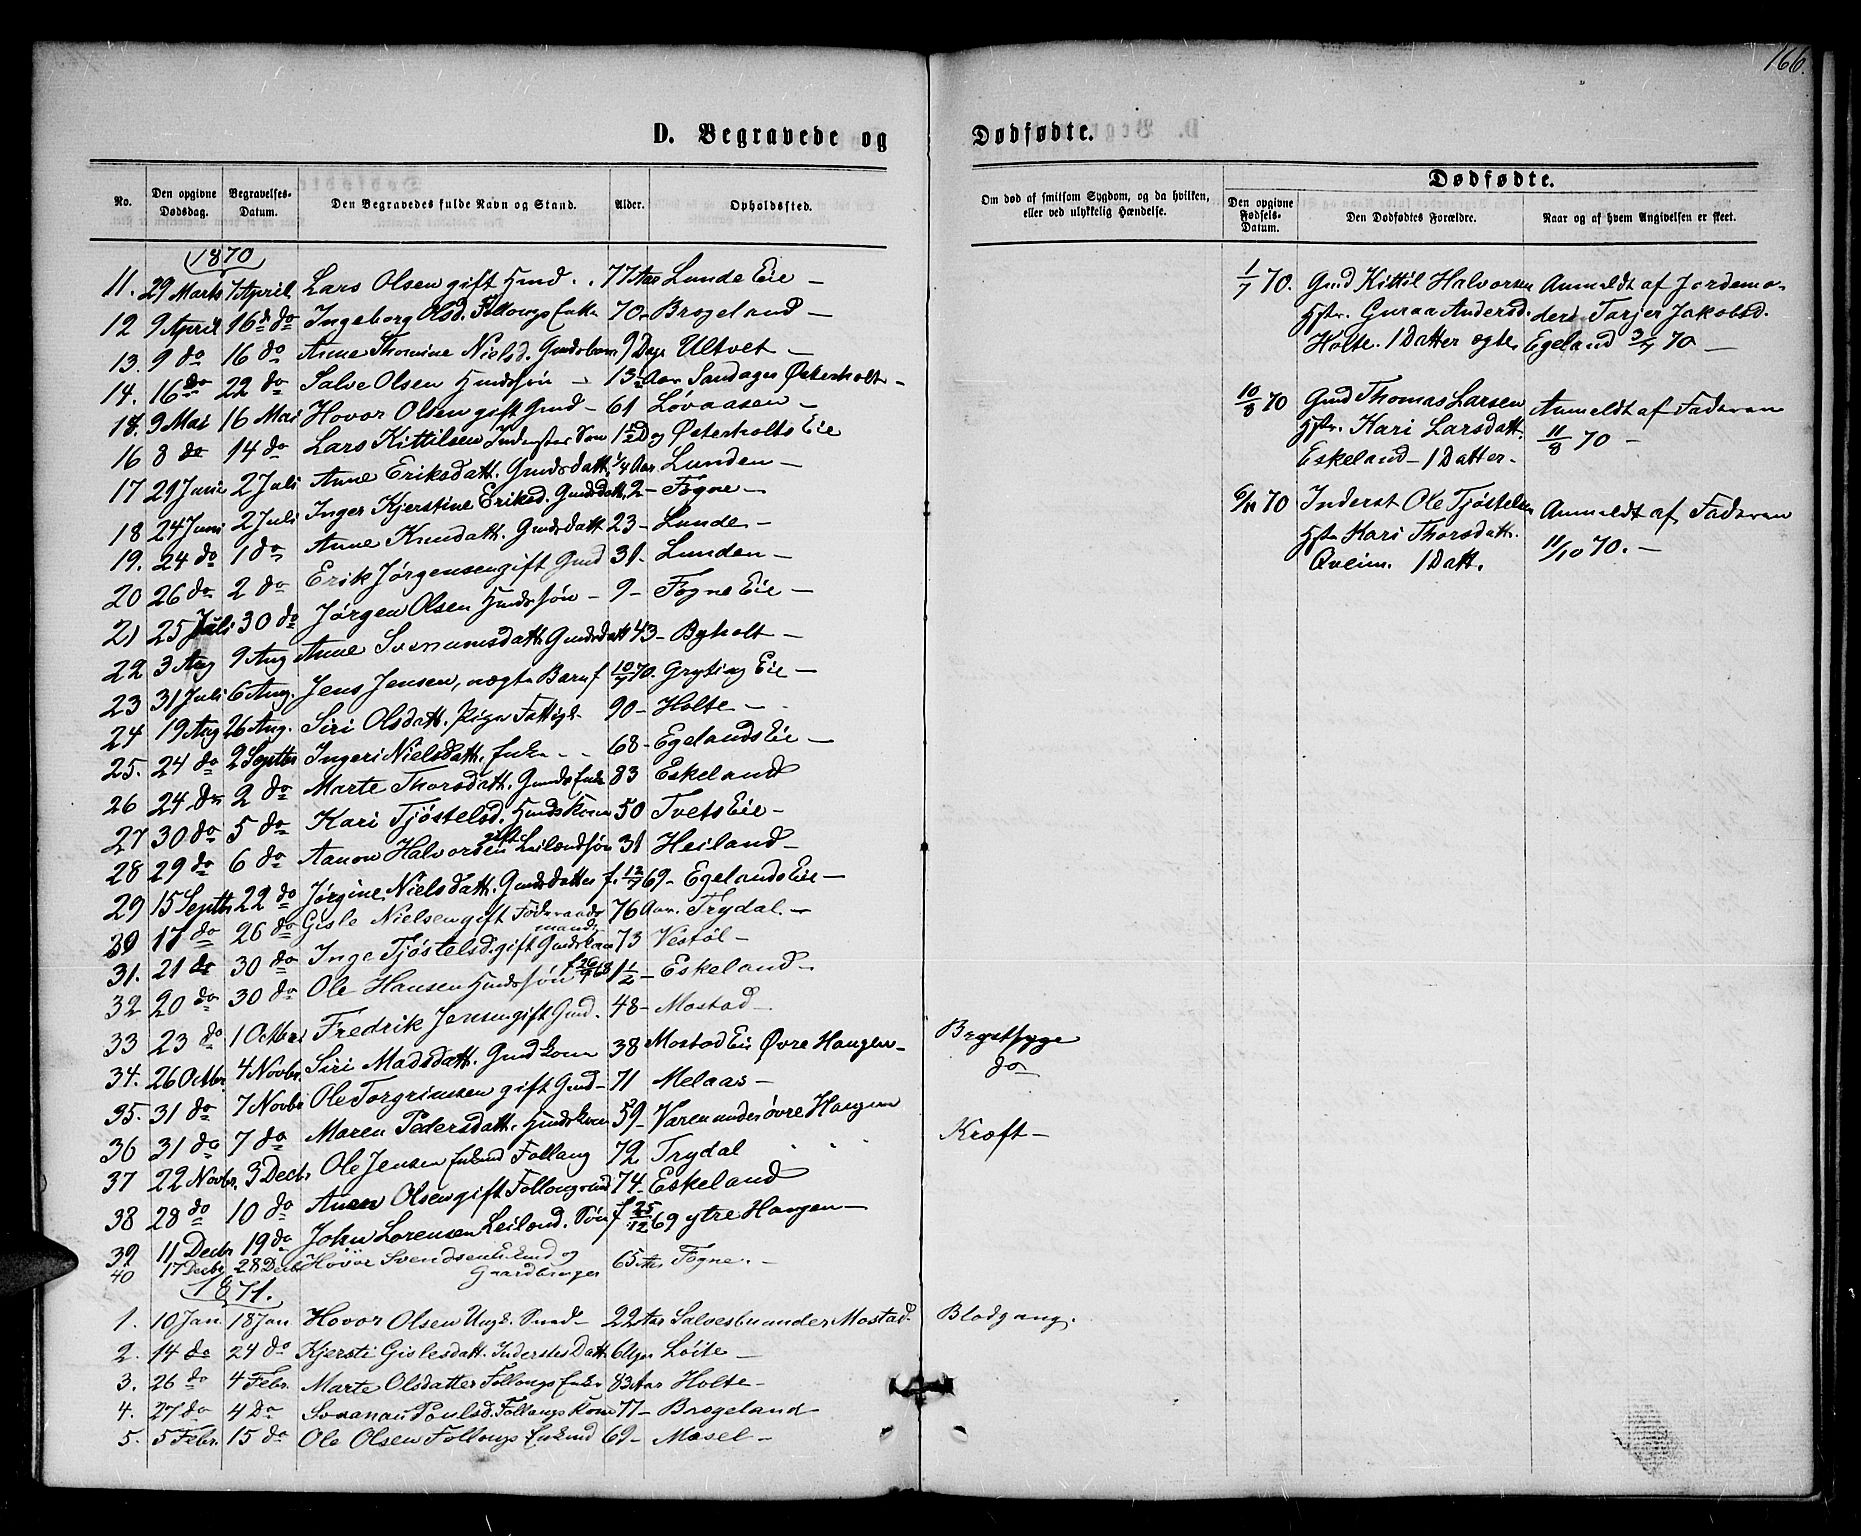 166.
D. Begravede og Dødfødte.
No. | Den opgivne Dødsdag. | Begravelses-Datum. | Den Begravedes fulde Navn og Stand. | Alder. | Opholdssted. | Om død af smitsom Sygdom, og da hvilken, eller ved ulykkelig Hændelse.
1870
11. 29 Marts 7 April Lars Olsen gift Gmd. 77 Aar Lunde Eie –
12 9 April 16 do Ingeborg Olsd. Follougs Enke 70 – Brogeland –
13. 9 do 16 do Anne Thomine Nielsd. Gmdsbarn 9 Dage Ultvet –
14. 16 do 22 do Salve Olsen Hmdssøn – 13½ Aar Sandager Østerholt –
18. 9 Mai 16 Mai Hovor Olsen gift Gmd – 61 Løvaasen –
16 8 do 14 do Lars Kittilsen Inderstes Søn Østerholts Eie
17 29 Juni 2 Juli Anne Eriksdatt. Gmdsdatt. ¼ Aar Lunden –
18 24 Juni 2 Juli Inger Kjerstine Eriksd. Gmdsdatt. 2 – Fogne –
19. 24 do 1 do Anne Knudatt. Gmdsdatt 23 – Lunde –
20 26 do 2 do Erik Jørgensen gift Gmd 31 – Lunden –
21 25 Juli 30 do Jørgen Olsen Hmdssøn – 9 – Fogne Eie –
22 3 Aug 9 Aug Anne Svenumsdatt Gmdsdatt 43 – Byholt –
23 31 Juli 6 Aug. Jens Jensen, uægte Barn f 10/7 70. Gryting Eie –
24 19 Aug 26 Aug. Siri Olsdatt. Pige Fattigl. 90 – Holte –
25. 24 do 2 Septbr Ingeri Nielsdatt. Enke – 68 – Egelands Eie –
26 24 do 2 do Marte Thorsdatt. Gmds Enke 83 Eskeland
27 30 do 5 do Kari Tjøstelsd. Hmdskone 50 Tvets Eie –
28 29 do 6 do Aanon Halvorsen gift Leilændsøn 31 Heiland –
29 15 Septbr 22 do Jørgine Nielsdatt. Gmdsdatter f. 12/7 69 – Egelands Eie –
30 17 do 26 do Gisle Nielsen gift Føderaadsmand 76 Aar. Trydal. –
31. 21 do 30 do Inge Tjøstelsd. gift Gmdskone 73 Vestøl –
32 20 do 30 do Ole Hansen Hmdssøn 1½ – Eskeland –
33 23 do 1 Octbr Fredrik Jensen gift Gmd. 48 – Mostad – Brystsyge
34. 26 Octbr. 4 Novbr. Siri Madsdatt. Gmdkone 38 Mostad Eie Øvre Haugen – do
35. 31 do 7 Novbr Ole Torgrimsen gift Gmd – 71 Melaas –
36 31 do 7 do Maren Pedersdatt. Hmdskone 59 – Varen under øvre Haugen Kræft –
37 22 Novbr. 3 Decbr Ole Jensen Enkmd Follaug 72 Trydal
38 28 do 10 do Anen Olsen gift Follougmd 74 – Eskeland
39 11 Decbr 19 do John Lorensen Leilænd. Søn f 25/12 69 ytre Haugen –
40 17 Decbr 28 Decbr Hovor Svendsen Enkmd og Gaardbruger 65 Aar Fogne. –
1871.
1. 10 Jan 18 Jan Hovor Olsen Ungk. Smed – 22 Aar Salvesbu under Mostad. Blodgang.
2. 14 do 24 do Kjersti Gislesdatt. Inderstes Datt 6 Uger Løite –
3. 26 do 4 Febr. Marte Olsdatter Follougs Enke 83 Aar Holte –
4. 27 do 4 do Svanau Poulsd. Follougs Kone 77 – Brogeland –
5. 5 Febr. 15 do Ole Olsen Follougs Enkmd 69 – Mæsel –
Dødfødte.
Den opgivne Fødsels-Datum. | Den Dødfødtes Forældre. | Naar og af hvem Angivelsen er skeet.
1/7 70. Gmd Kittil Halvorsen Anmeldt af Jordemo-
Hstr. Guraa Andersd. deren Tarjer Jakobsd.
Holte. 1 Datter ægte Egeland 3/7 70 –
10/8 70 Gmd Thomas Larsen Anmeldt af Faderen
Hstr. Kari Larsdatt. 11/8 70 –
Eskeland – 1 Datter –
6/10 70 Inderst Ole Tjøstelsen Anmeldt af Faderen
Hstr Kari Thorsdatt. 11/10 70. –
Qveim. 1 Datt.